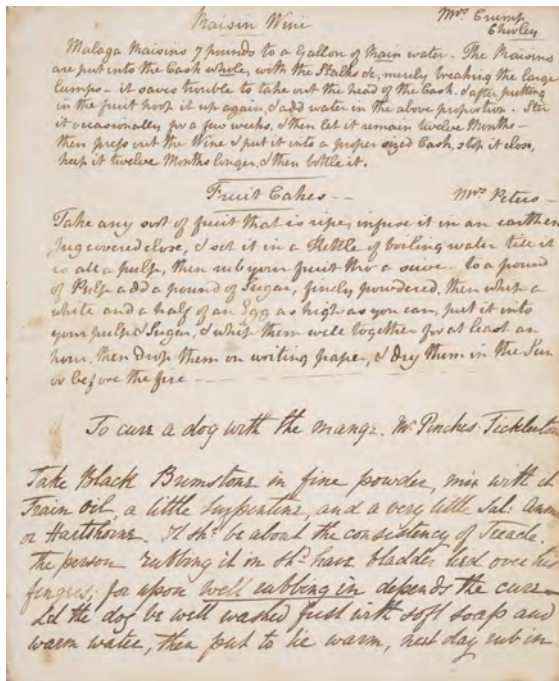 Raisin Wine
Mrs Crump
Chirley
Malaga Raisins 7 pounds to a Gallon of Rain water. The Raisins
are put into the Cask whole, with the Stalks &c, merely breaking the large
lumps - it saves trouble to take out the head of the Cask, & after putting
in the fruit hoop it up again, & add water in the above proportion. Stir
it occasionally for a few weeks, & then let it remain twelve Months -
then press out the Wine & put it into a proper sized Cask, stop it close,
keep it twelve Months longer, & then bottle it.
Fruit Cakes --
Mrs Peters -
Take any sort of fruit that is ripe, infuse it in an earthen
Jug covered close, & set it in a Kettle of boiling water till it
is all a pulp, then rub your fruit thro a sieve - to a pound
of Pulp add a pound of Sugar, finely powdered, then whip a
white and a half of an Egg as high as you can, put it into
your pulp & Sugar, & whip them well together for at least an
hour, then drop them on writing paper, & dry them in the Sun
or before the fire --
To cure a dog with the mange. Mr Pinches Ticklerton
Take Black Brimstone in fine powder, mix with it
Train Oil, a little turpentine, and a very little Sal: Amm
or Hartshorne. It shd be about the consistency of Treacle.
The person rubbing it in shd have bladder tied over his
fingers; for upon well rubbing in depends the cure -
Let the dog be well washed first with soft soap and
warm water, then put to lie warm, next day rub in